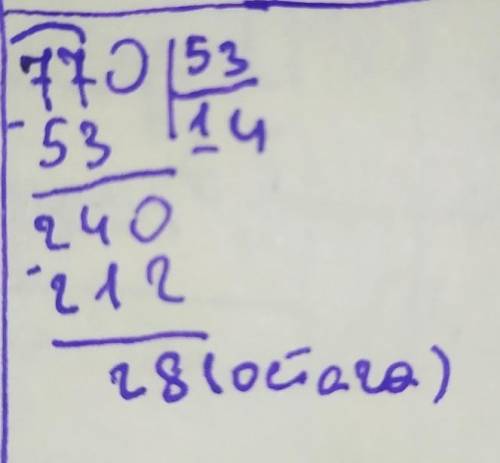 770 | 53
- 53 | 14
240
- 212
28 (остаток)